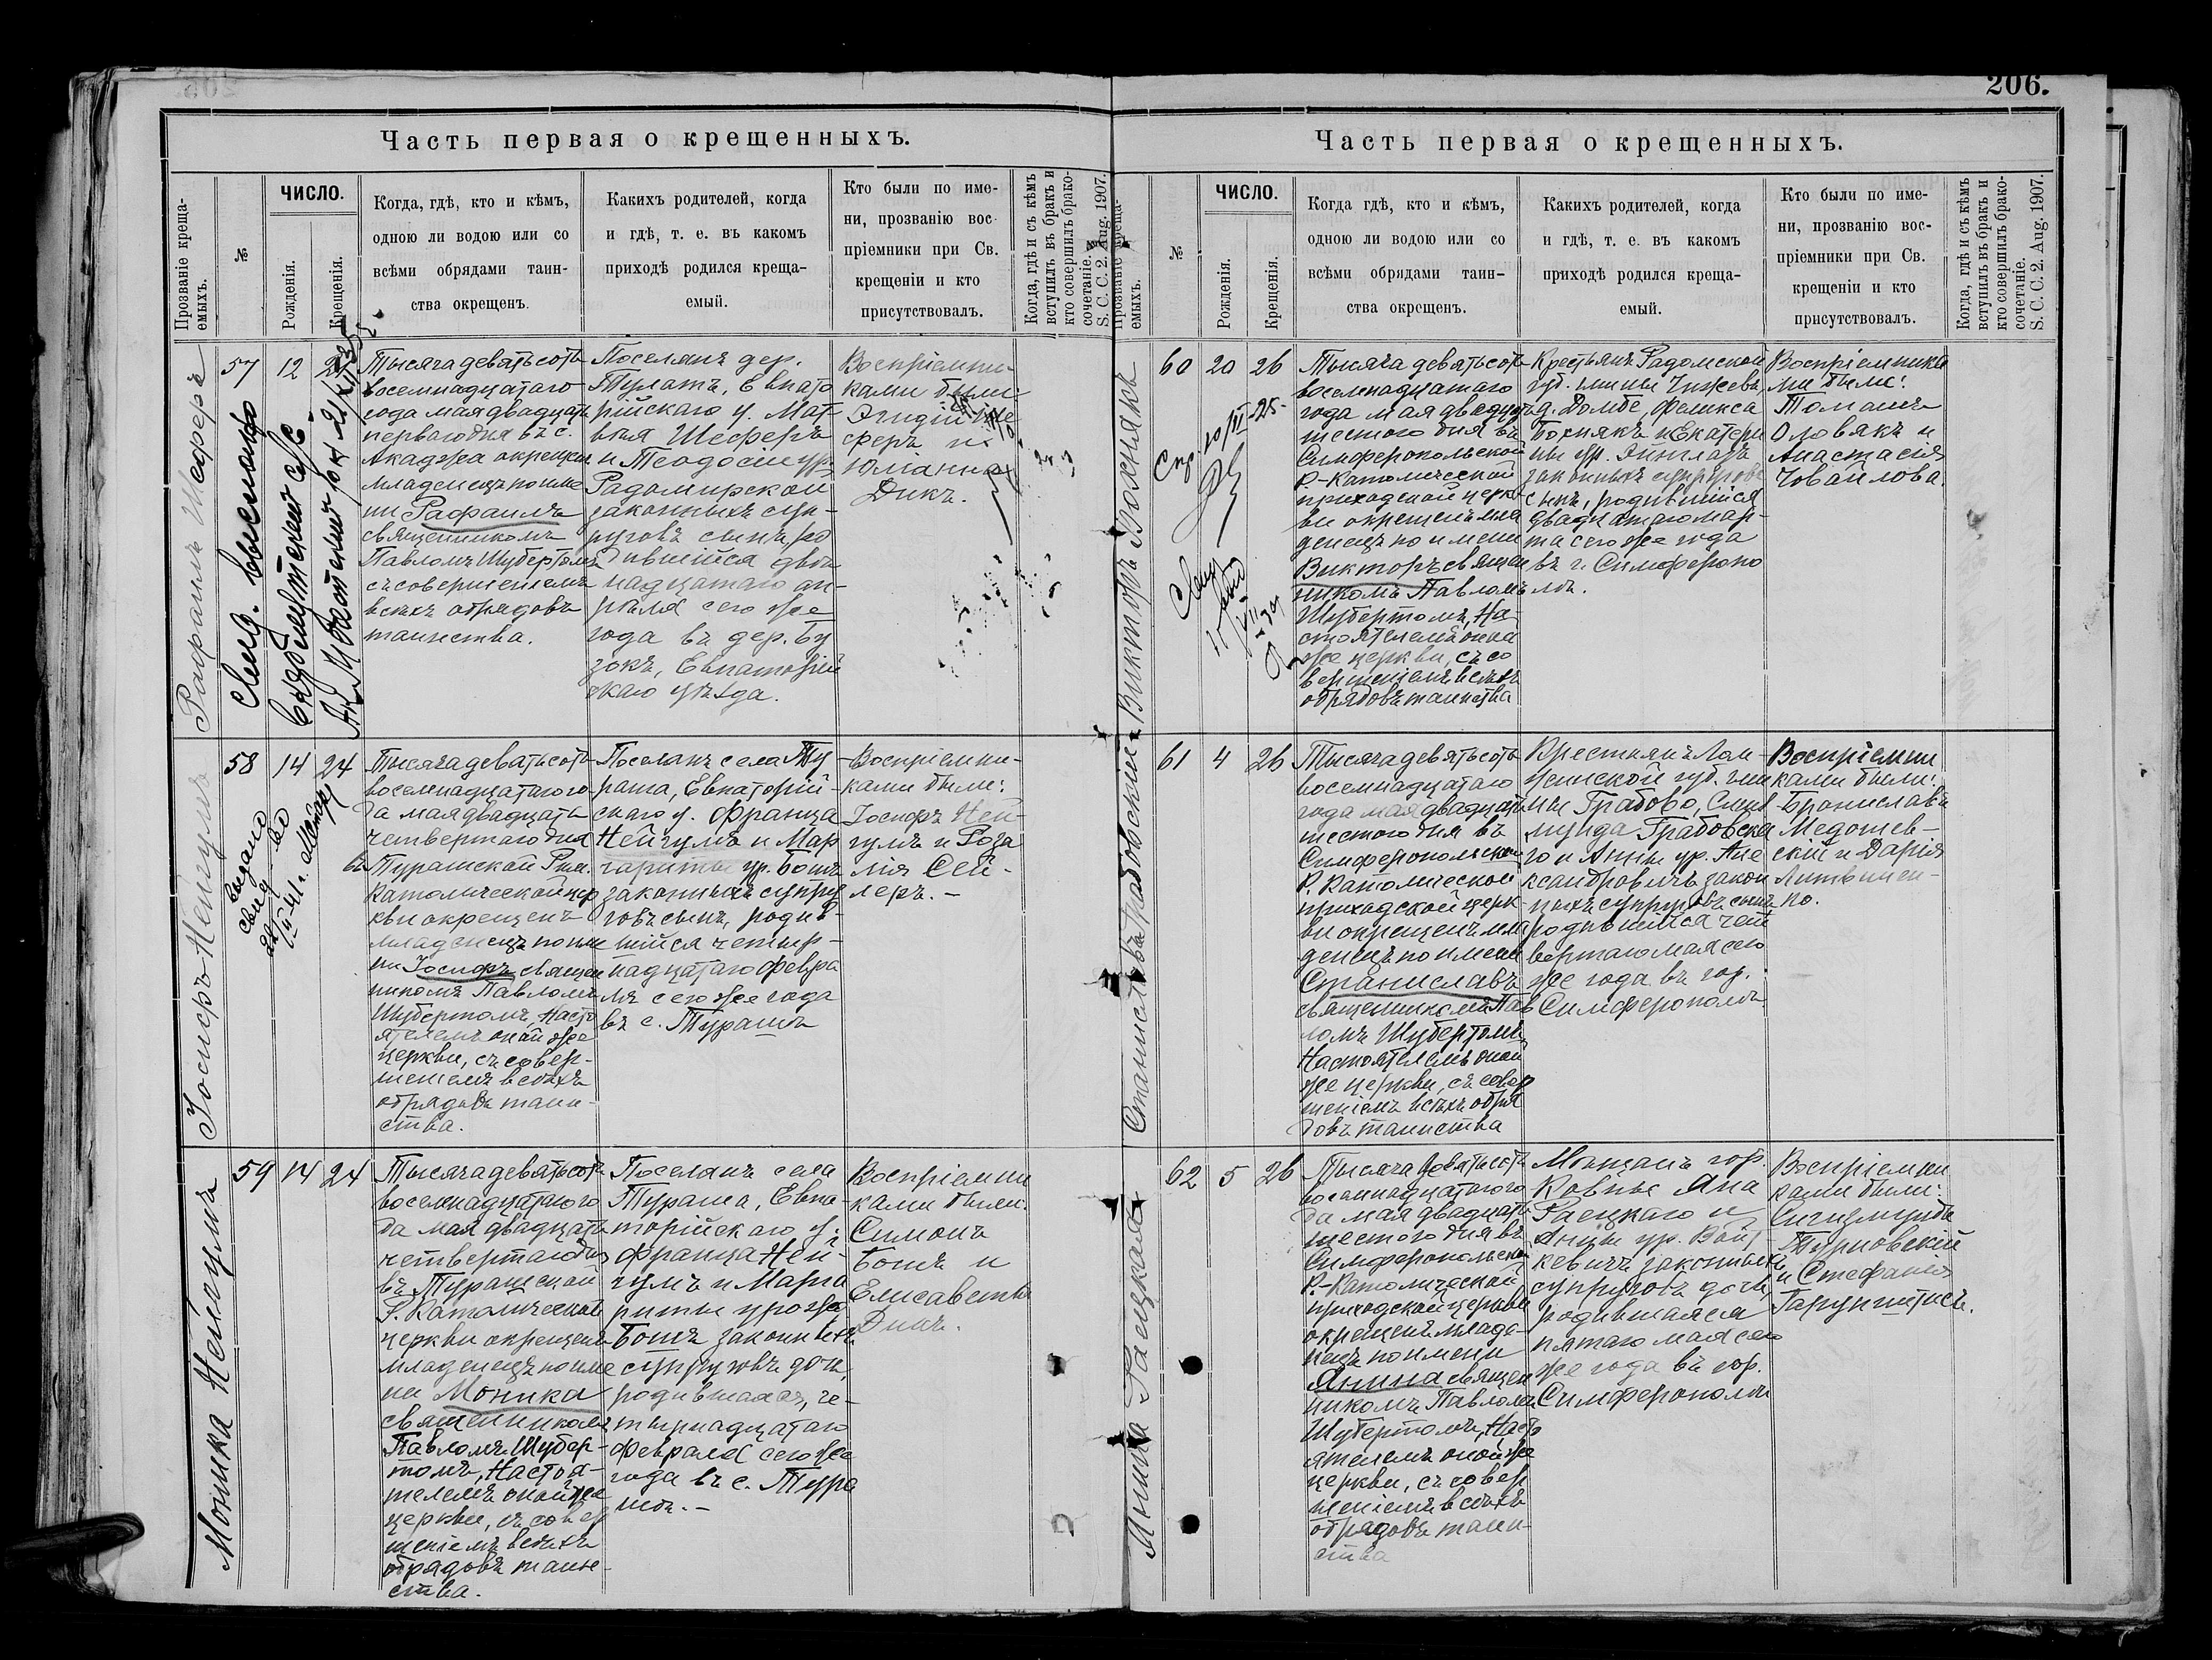 206.
Часть первая о крещенныхъ.
Прозваніе креща-
емыхъ.
№
ЧИСЛО.
Рожденія.
Крещенія.
Когда, гдѣ, кто и кѣмъ,
одною ли водою или со
всѣми обрядами таин-
ства окрещенъ.
Какихъ родителей, когда
и гдѣ, т. е. въ какомъ
приходѣ родился креща-
емый.
Кто были по име-
ни, прозванію вос-
пріемники при Св.
крещеніи и кто
присутствовалъ.
Когда, гдѣ и съ кѣмъ
вступилъ въ бракъ и
кто совершилъ брако-
сочетаніе.
S. C. C. 2. Aug. 1907.
Рафаилъ Шеферъ
57
12
21
Тысяча девятьсотъ
восемнадцатаго
года мая двадцать
перваго дня въ с.
Акаджа окрещенъ
младенецъ по име
ни Рафаилъ
священникомъ
Павломъ Шубертомъ
съ совершеніемъ
всѣхъ обрядовъ
таинства.
Поселянъ дер.
Тулатъ, Евпато
рійскаго у. Мат-
вея Шеферъ
и Теодосіи ур.
Радомирской
законныхъ суп-
руговъ сынъ, ро
дившійся двѣ
надцатаго ап-
рѣля сего же
года въ дер. Бу
зокъ, Евпаторій
скаго уѣзда.
Воспріемни-
ками были:
сферъ и
Юліанна
Дикъ.
Іосифъ Нейгумъ
58
14
24
Выдано
свид-во
Тысяча девятьсотъ
восемнадцатаго го
да мая двадцать
четвертаго дня
въ Турашской Рим.
Католической цер
кви окрещенъ
младенецъ по име
ни Іосифъ священ
никомъ Павломъ
Шубертомъ, Насто
ятелемъ оной же
церкви, съ совер-
шеніемъ всѣхъ
обрядовъ таин-
ства.
Поселянъ села Ту
раша, Евпаторій-
скаго у. Франца
Нейгумъ и Мар
гариты ур. Бошъ
законныхъ супру
говъ сынъ, родив-
шійся четыр-
надцатаго февра
ля сего же года
въ с. Турашъ
Воспріемни-
ками были:
Іосифъ Ней
гумъ и Роза
лія Сей-
леръ. -
Моника Нейгумъ
59
14
24
Тысяча девятьсотъ
восемнадцатаго го
да мая двадцать
четвертаго дня
въ Турашской
Р. Католической
церкви окрещенъ
младенецъ по име
ни Моника
священникомъ
Павломъ Шубер-
томъ, Настоя-
телемъ оной же
церкви, съ совер
шеніемъ всѣхъ
обрядовъ таин-
ства.
Поселянъ села
Тураша, Евпа-
торійскаго у.
Франца Ней-
гумъ и Марга
риты урожд
Бошъ законныхъ
супруговъ дочь,
родившаяся, че-
тырнадцатаго
февраля сего же
года въ с. Тура
шъ. -
Воспріемни
ками были:
Симонъ
Бошъ и
Елисавета
Дикъ.
Часть первая о крещенныхъ.
Прозваніе креща-
емыхъ.
№
ЧИСЛО.
Рожденія.
Крещенія.
Когда гдѣ, кто и кѣмъ,
одною ли водою или со
всѣми обрядами таин-
ства окрещенъ.
Какихъ родителей, когда
и гдѣ, т. е. въ какомъ
приходѣ родился креща-
емый.
Кто были по име-
ни, прозванію вос-
пріемники при Св.
крещеніи и кто
присутствовалъ.
Когда, гдѣ и съ кѣмъ
вступилъ въ бракъ и
кто совершилъ брако-
сочетаніе.
S. C. C. 2. Aug. 1907.
Викторъ Бохнякъ
60
20
26
Тысяча девятьсотъ
восемнадцатаго
года мая двадцать
шестого дня въ
Симферопольской
Р.-Католической
приходской церк
ви окрещенъ мла
денецъ по имени
Викторъ священ
никомъ Павломъ
Шубертомъ, На-
стоятелемъ оной
же церкви, съ со
вершеніемъ всѣхъ
обрядовъ таинства
Крестьянъ Радомской
губ. гмины Чижевъ,
д. Домбе, Феликса
Бохнякъ и Екатери
ны ур.
законныхъ супруговъ
сынъ, родившійся
двадцатаго мар-
та сего же года
въ г. Симферопо
лѣ.
Воспріемника
ми были:
Томашъ
Оловякъ и
Анастасія
Човайлова
Станиславъ Грабовскій
61
4
26
Тысяча девятьсотъ
восемнадцатаго
года мая двадцать
шестого дня въ
Симферопольской
Р. Католической
приходской церк-
ви окрещенъ мла
денецъ по имени
Станиславъ
священникомъ Пав
ломъ Шубертомъ,
Настоятелемъ оной
же церкви, съ совер
шеніемъ всѣхъ обря
довъ таинства
Крестьянъ Лом-
жинской губ. гми
ны Грабово, Сигиз
мунда Грабовска
го и Анны ур. Але
ксандровичъ закон
ныхъ супруговъ сынъ
родившійся чет
вертаго мая сего
же года въ гор.
Симферополѣ
Воспріемни
ками были:
Брониславъ
Медошев-
скій и Дарія
Литвинен-
ко.
Янина Гаецкая
62
5
26
Тысяча девятьсотъ
восемнадцатаго го
да мая двадцать
шестого дня въ
Симферопольской
Р.-Католической
приходской церкви
окрещенъ младе-
нецъ по имени
Янина священ
никомъ Павломъ
Шубертомъ, Насто
ятелемъ оной же
церкви, съ совер
шеніемъ всѣхъ
обрядовъ таин-
ства
Мѣщанъ гор.
Ковны Яна
Гаецкаго и
Анны ур. Вой
кевичъ законныхъ
супруговъ дочь,
родившаяся
пятаго мая сего
же года въ гор.
Симферополѣ
Воспріемни
ками были:
Сигизмундъ
Турновскій
и Стефанія